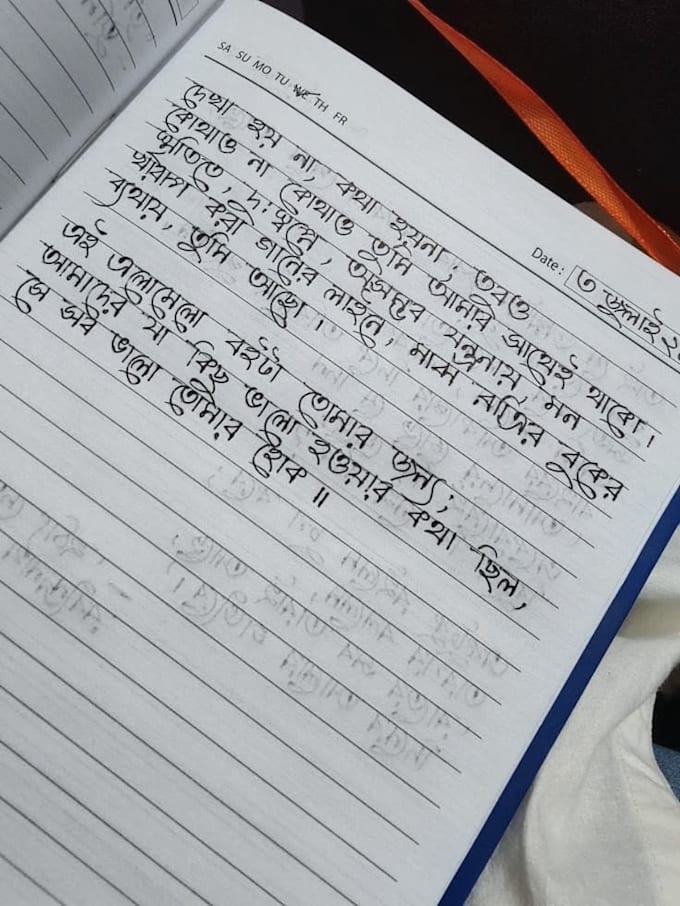 SA SU MO TU WE TH FR
Date: ৩ জুলাই
দেখা হয় না, কথা হয়না; তবুও
কোথাও না কোথাও তুমি আমার সাথেই থাকো।
স্মৃতিতে, দুঃস্বপ্নে, অসম্ভব যন্ত্রনায় মন
খারাপ করা গানের লাইনে, মাঝ রাত্রির বুকের
ব্যথায়, তুমি আছো।
এই এলোমেলো বইটা তোমার জন্য;
আমাদের যা কিছু ভালো হওয়ার কথা ছিল,
সে সব ভালো তোমার হোক॥